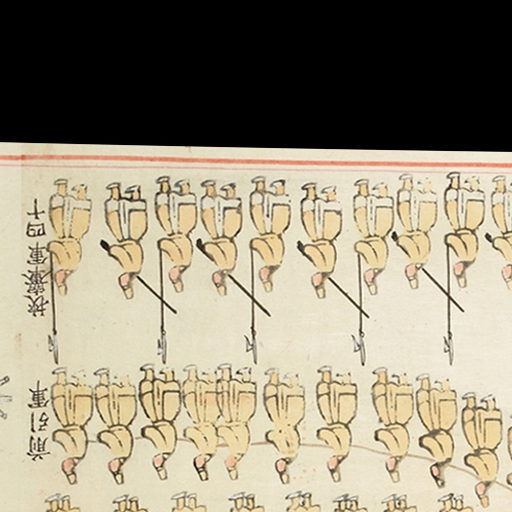 前引軍
挾輦軍四十